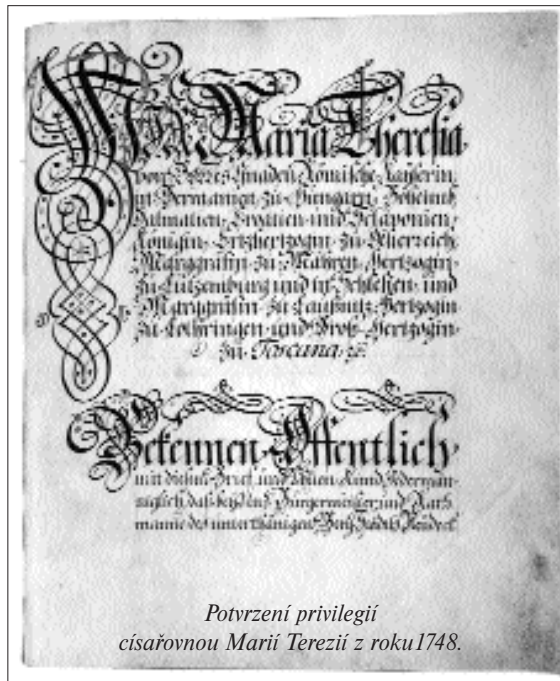 Wir Maria Theresia
von Gottes Gnaden Römische Kayserin,
in Germanien zu Hungarn, Böheimb,
Dalmatien, Croatien und Sclavonien,
Königin, Ertzhertzogin zu Österreich,
Marggräfin zu Mähren, Hertzogin
zu Lützenburg und in Schlesien und
Marggräfin zu Laußnitz, Hertzogin
zu Lothringen und Groß-Hertzogin
zu Toscana
Bekennen Offentlich
mit diesem Brief, und thuen Kund Jederman
daß Bürgermeister und Rath
manne des unterthänigen
Potvrzení privilegií
císařovnou Marií Terezií z roku1748.